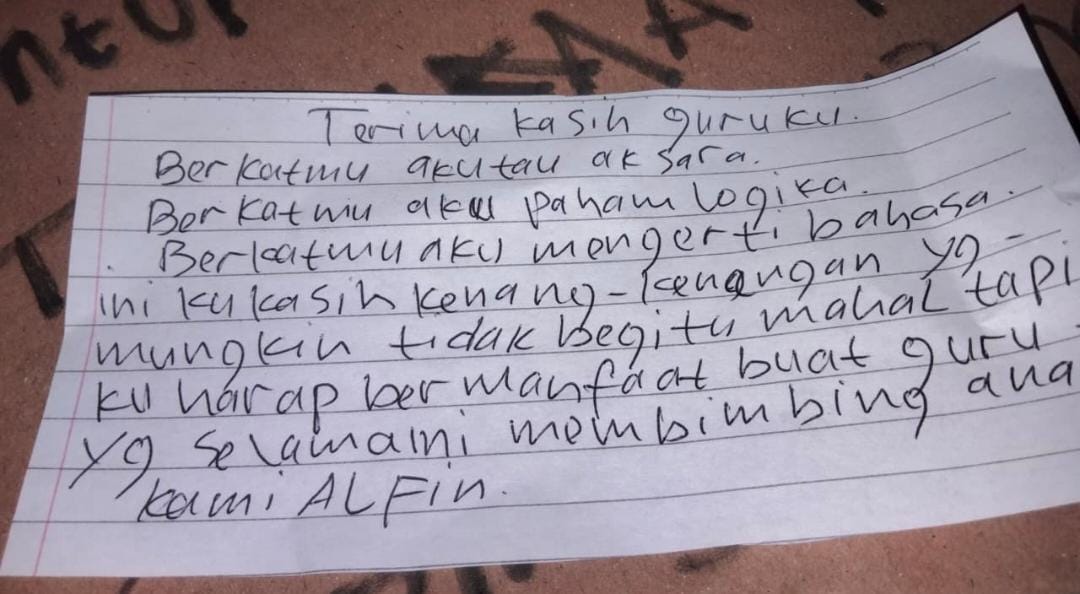 Terima kasih guruku.
Berkatmu aku tau aksara.
Berkatmu aku paham logika.
Berkatmu aku mengerti bahasa.
ini ku kasih kenang-kenangan yg -
mungkin tidak begitu mahal tapi
ku harap bermanfaat buat guru -
yg selamaini membimbing ana
kami ALFin.